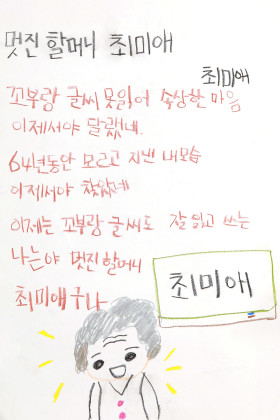 멋진 할머니 최미애
최미애
꼬부랑 글씨 못읽어 속상한 마음
이제서야 달랬네.
64년동안 모르고 지낸 내모습
이제서야 찾았네
이제는 꼬부랑 글씨도 잘 읽고 쓰는
나는야 멋진 할머니
최미애 구나
최미애